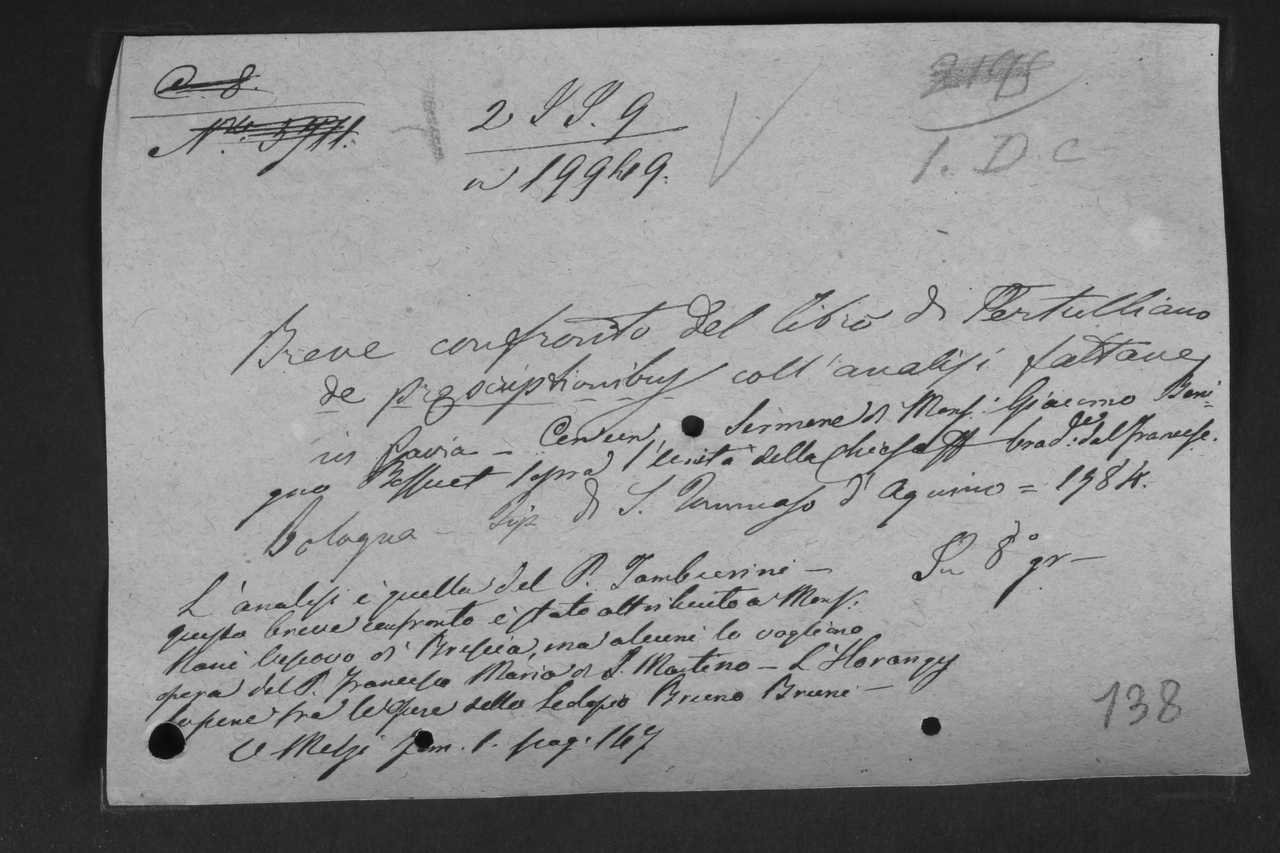 C. 8.
N.ro 5971.
2 SS. 9
n 19949.
1. D. C
Breve confronto del libro di Tertulliano
de præscriptionibus coll'analisi fattane
in Pavia – Con un Sermone di Mons. Giacomo Beni=
gno Bossuet sopra l'unità della chiesa trad.e dal francese.
Bologna – Tip. di S. Tommaso d'Aquino = 1784.
In 8° gr –
L'analisi è quella del P. Tamburini –
questo breve confronto è stato attribuito a Mons.
Nani Vescovo di Brescia, ma alcuni lo vogliono
opera del P. Francesco Maria di S. Martino – L'Horanyi
lo pone fra le opere dello Scolopio Bruno Bruni –
V. Melzi Tom. 1. pag. 147
138